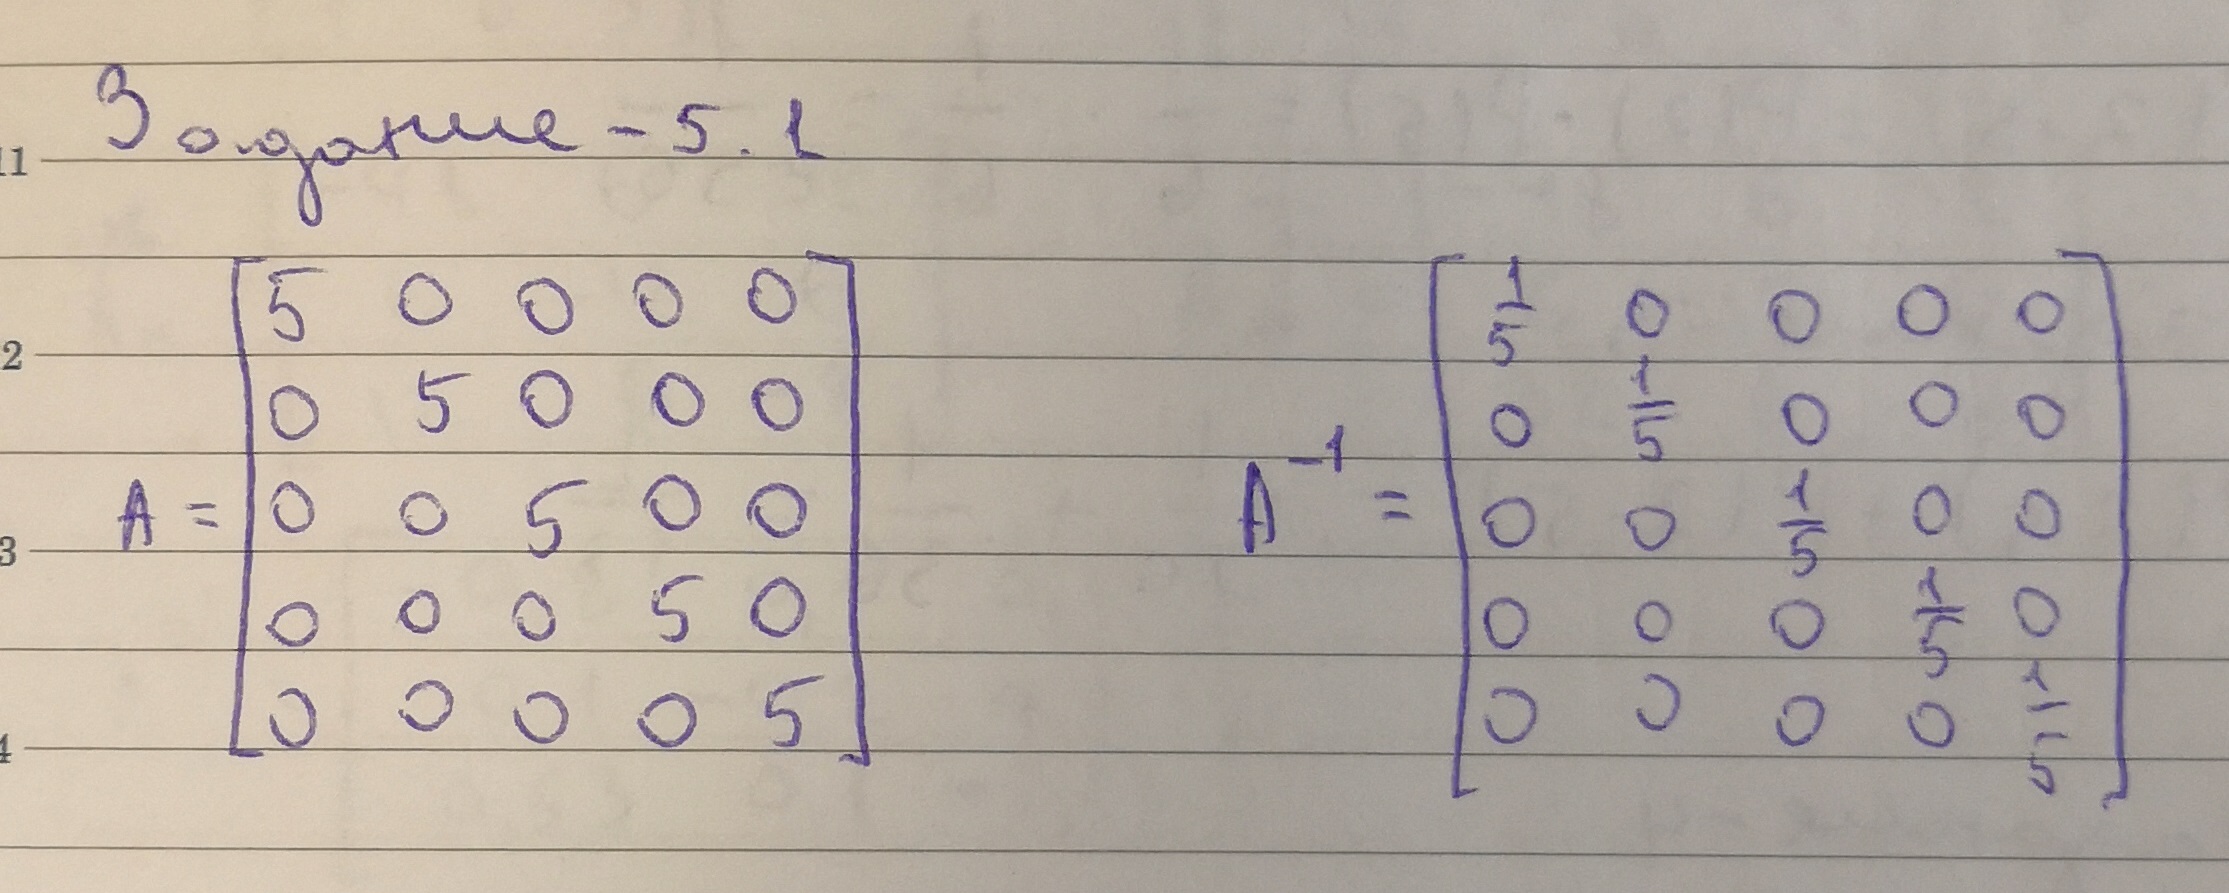 11
Задание - 5.1
2
3
4
A = [5 0 0 0 0
0 5 0 0 0
0 0 5 0 0
0 0 0 5 0
0 0 0 0 5]
A⁻¹ = [1/5 0 0 0 0
0 1/5 0 0 0
0 0 1/5 0 0
0 0 0 1/5 0
0 0 0 0 1/5]